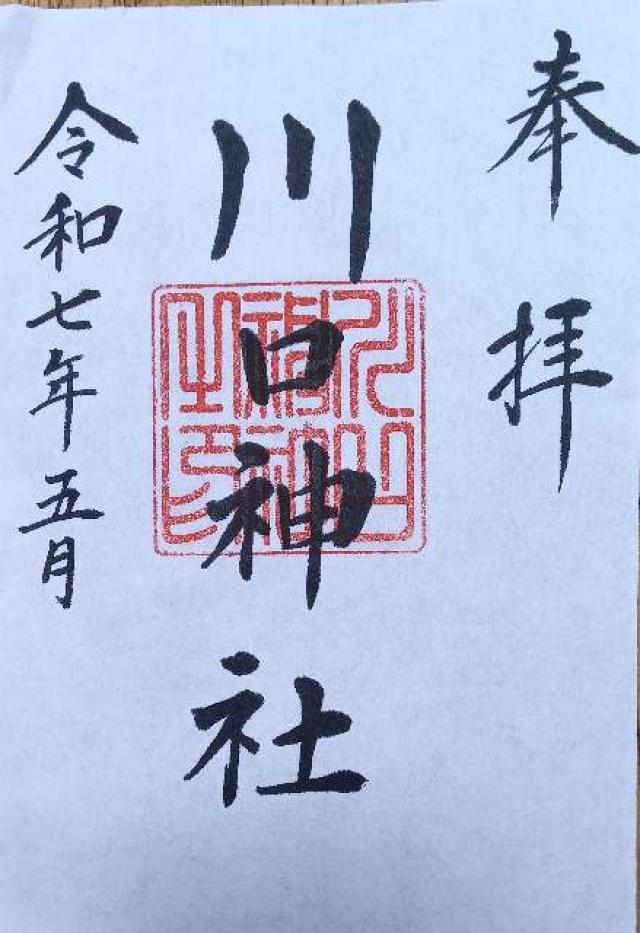 奉拝
川口神社
令和七年五月